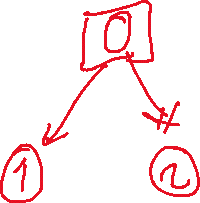 0
1 2